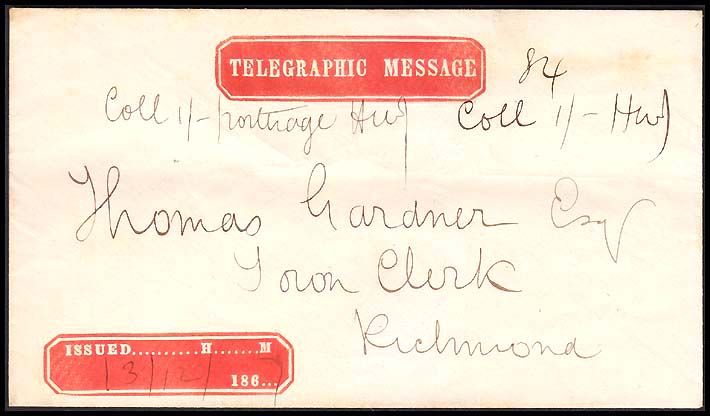 TELEGRAPHIC MESSAGE
84
Coll 1/- portrage HW Coll 1/- HW
Thomas Gardner Esq
Town Clerk
Richmond
ISSUED..........H.......M
13/12/ 1867...